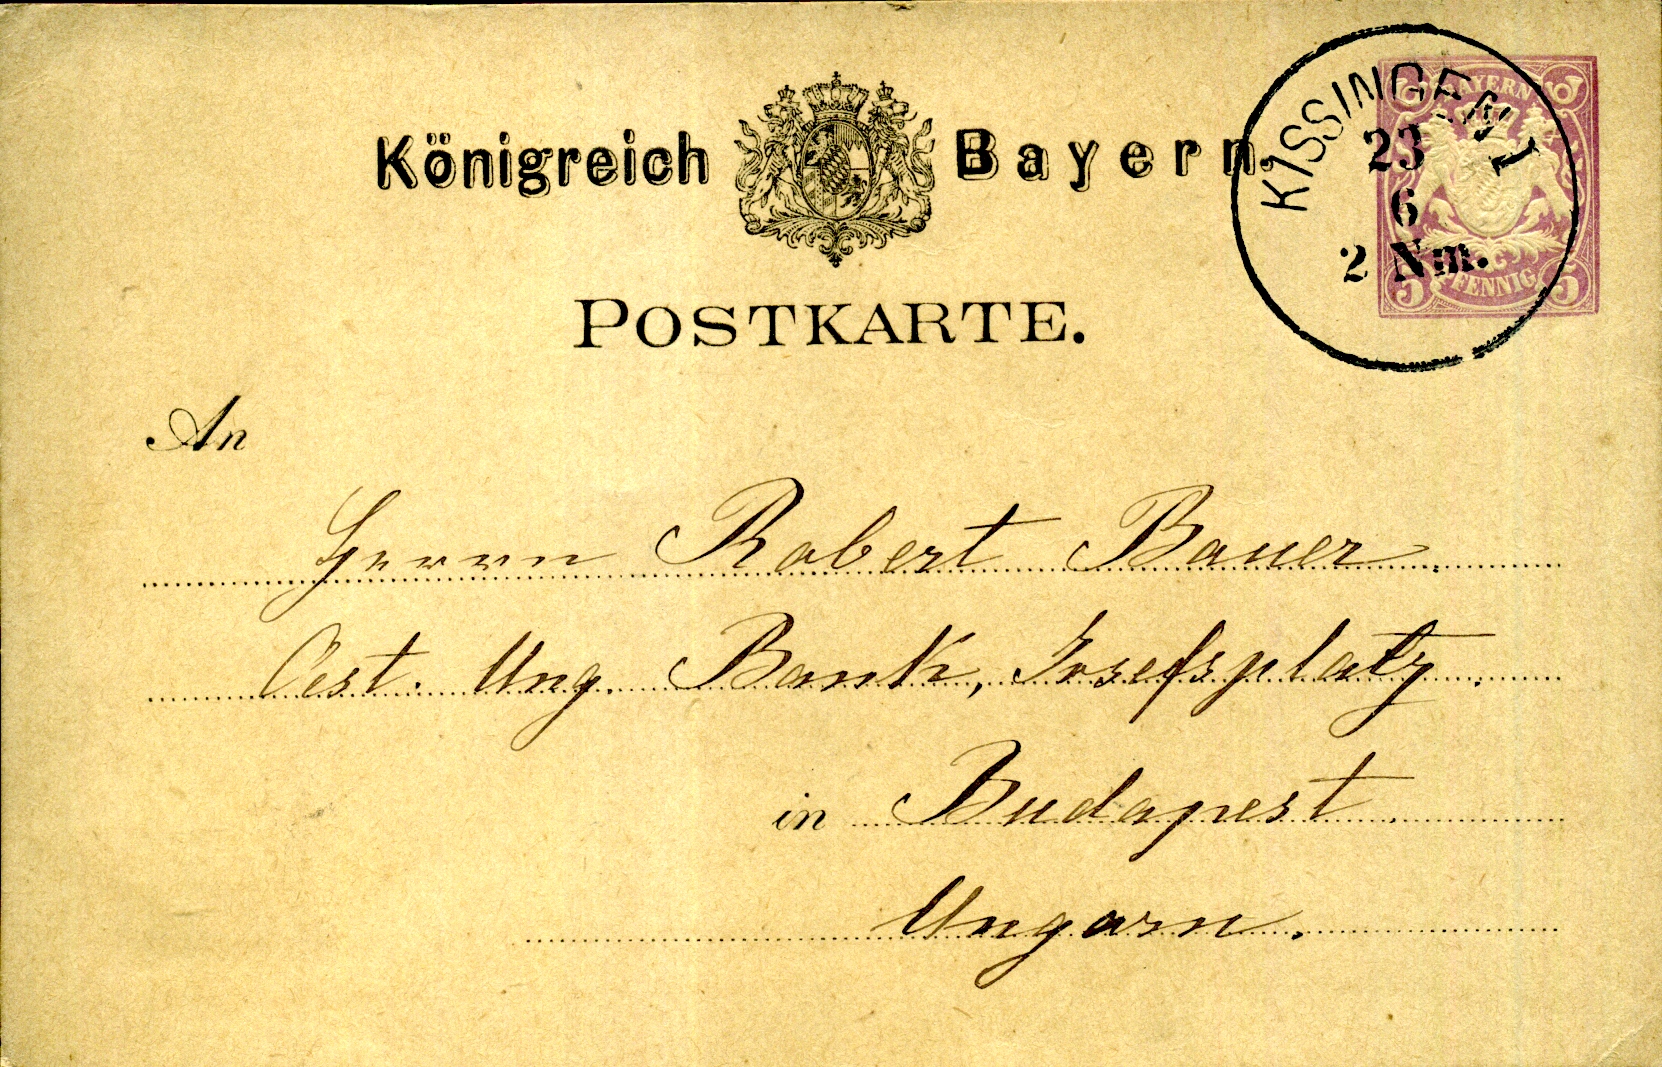 Königreich Bayern.
KISSINGEN I
23
6
2 Nm.
BAYERN
PFENNIG
5 5
POSTKARTE.
An
Herrn Robert Bauer.
Oest. Ung. Bank, Josefsplatz.
in Budapest.
Ungarn.